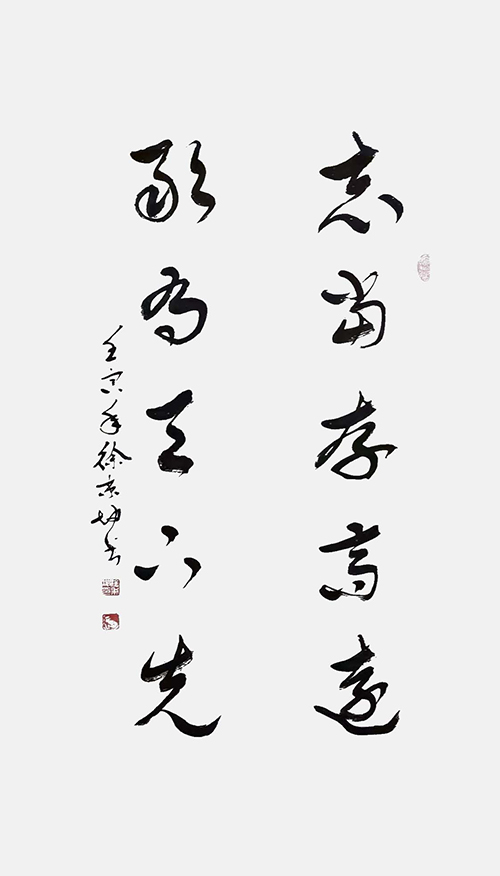 志当存高远
敢为天下先
壬寅年徐京坤书